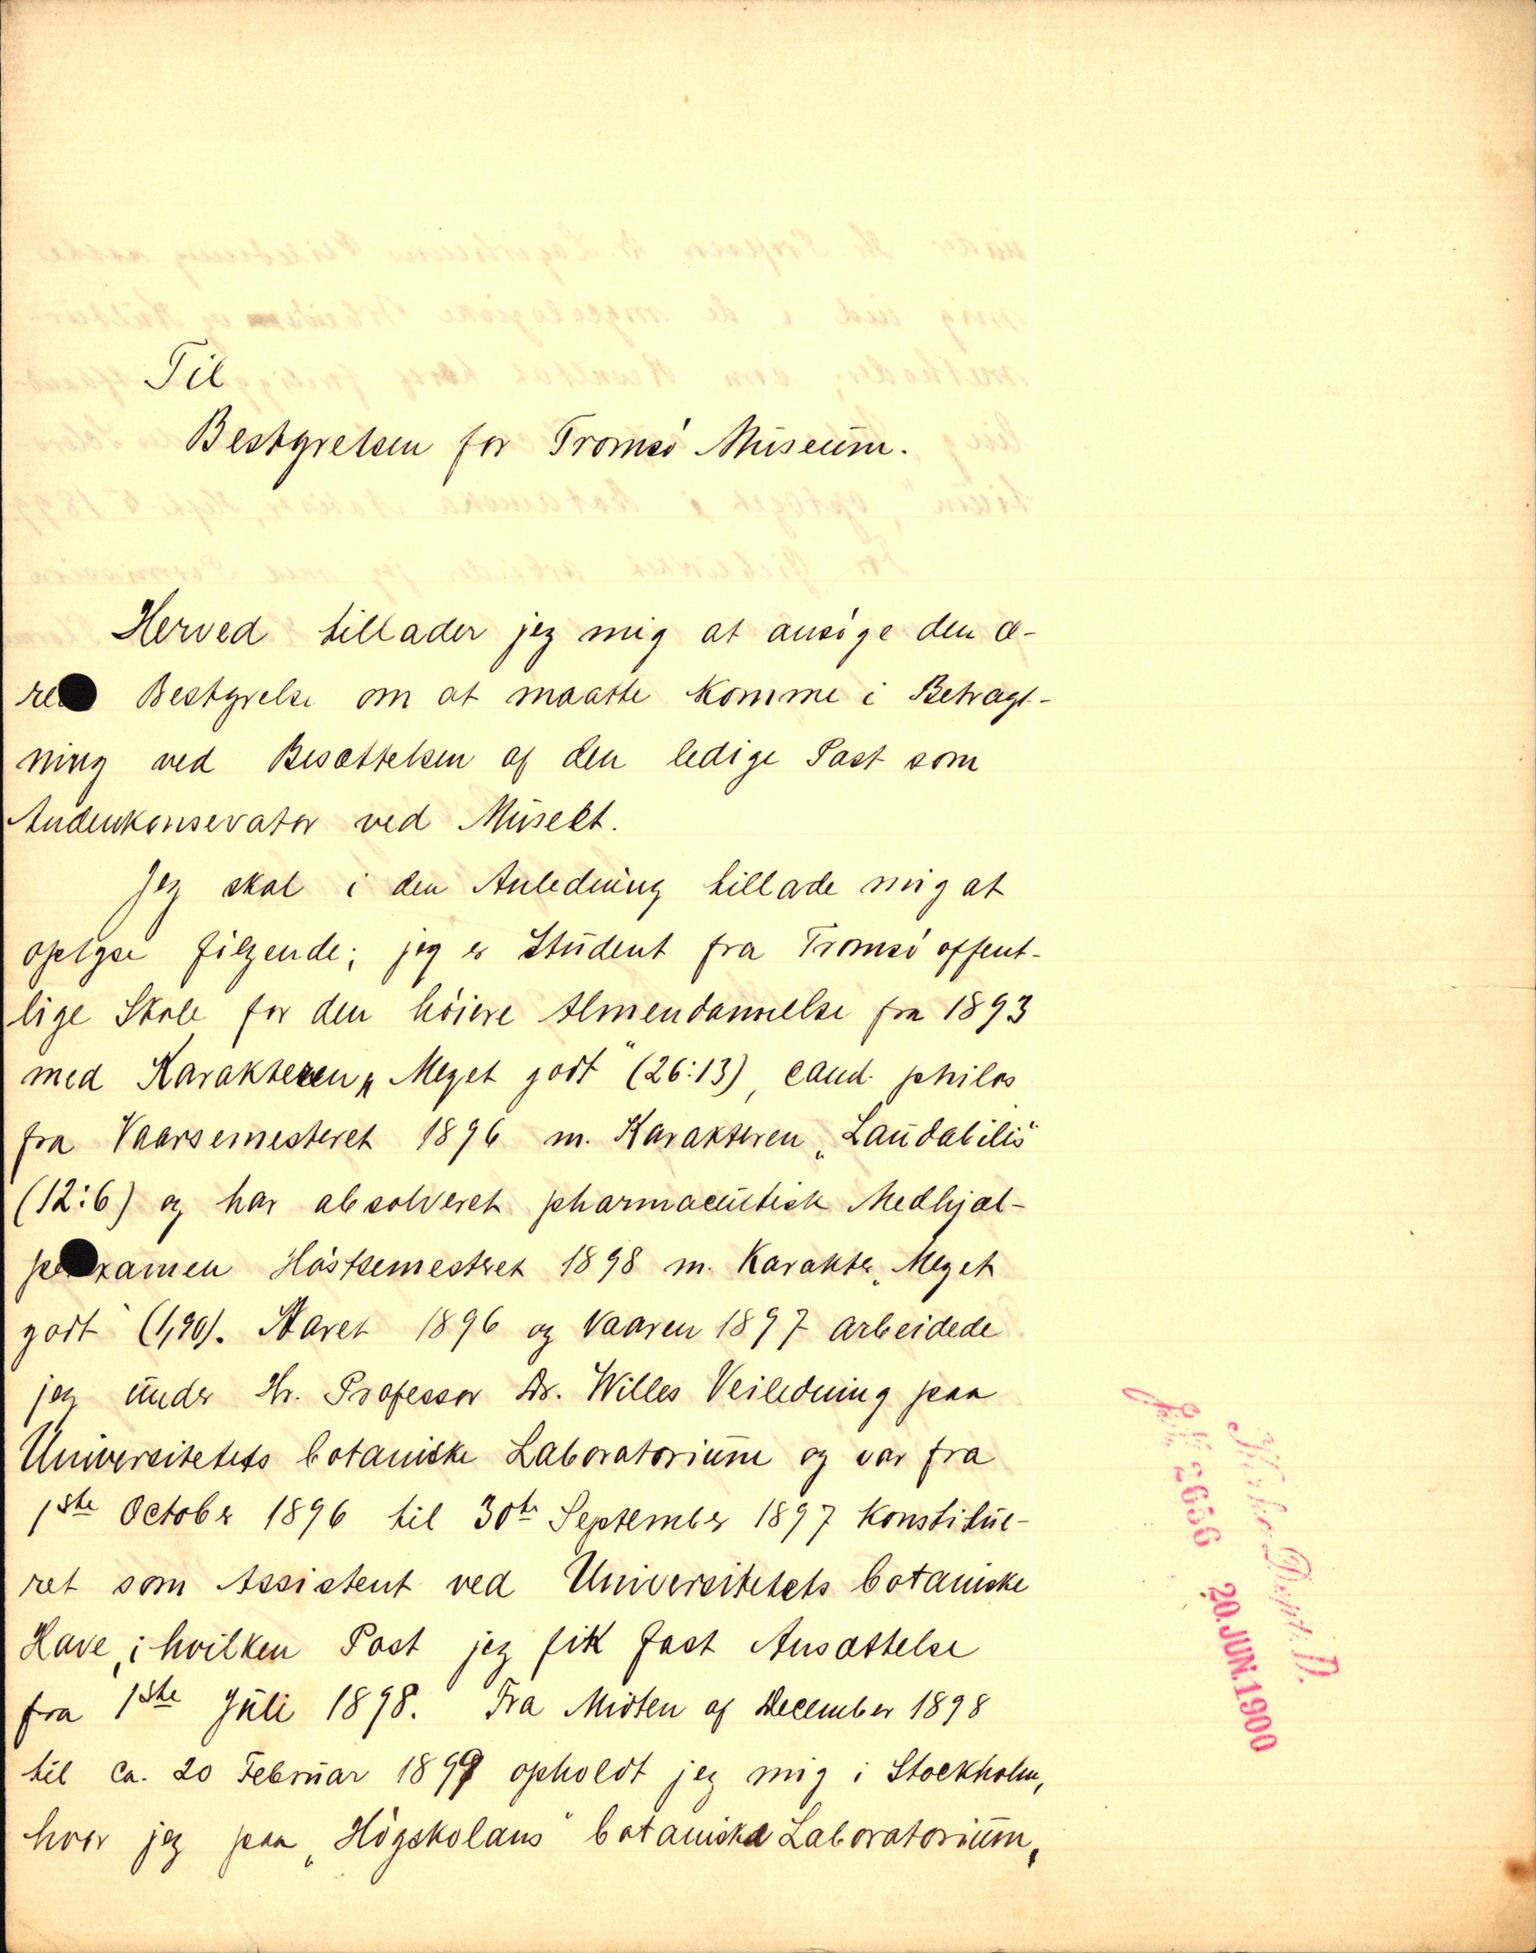 Til
Bestyrelsen for Tromsö Museum.
Herved tillader jeg mig at ansöge den æ-
rede Bestyrelse om at maatte komme i Betragt-
ning ved Besættelsen af den ledige Post som
Andenkonservator ved Museet.
Jeg skal i den Anledning tillade mig at
oplyse fölgende; jeg er Student fra Tromsö offent-
lige Skole for den höiere Almendannelse fra 1893
med Karakteren „Meget godt" (26:13), cand. philos
fra Vaarsemesteret 1896 m. Karakteren „Laudabilis"
(12:6) og har absolveret pharmaceutisk Medhjæl-
perexamen Höstsemesteret 1898 m. Karakter „Meget
godt" (1,90). Aaret 1896 og Vaaren 1897 arbeidede
jeg under Hr. Professor Dr. Willes Veiledning paa
Universitetets botaniske Laboratorium og var fra
1ste October 1896 til 30te September 1897 konstitue-
ret som Assistent ved Universitetets botaniske
Have, i hvilken Post jeg fik fast Ansættelse
fra 1ste Juli 1898. Fra Midten af December 1898
til ca. 20 Februar 1899 opholdt jeg mig i Stockholm,
hvor jeg paa „Högskolans" botaniska Laboratorium,
Kirke-Dept. D.
J.N. 2656 20.JUN.1900